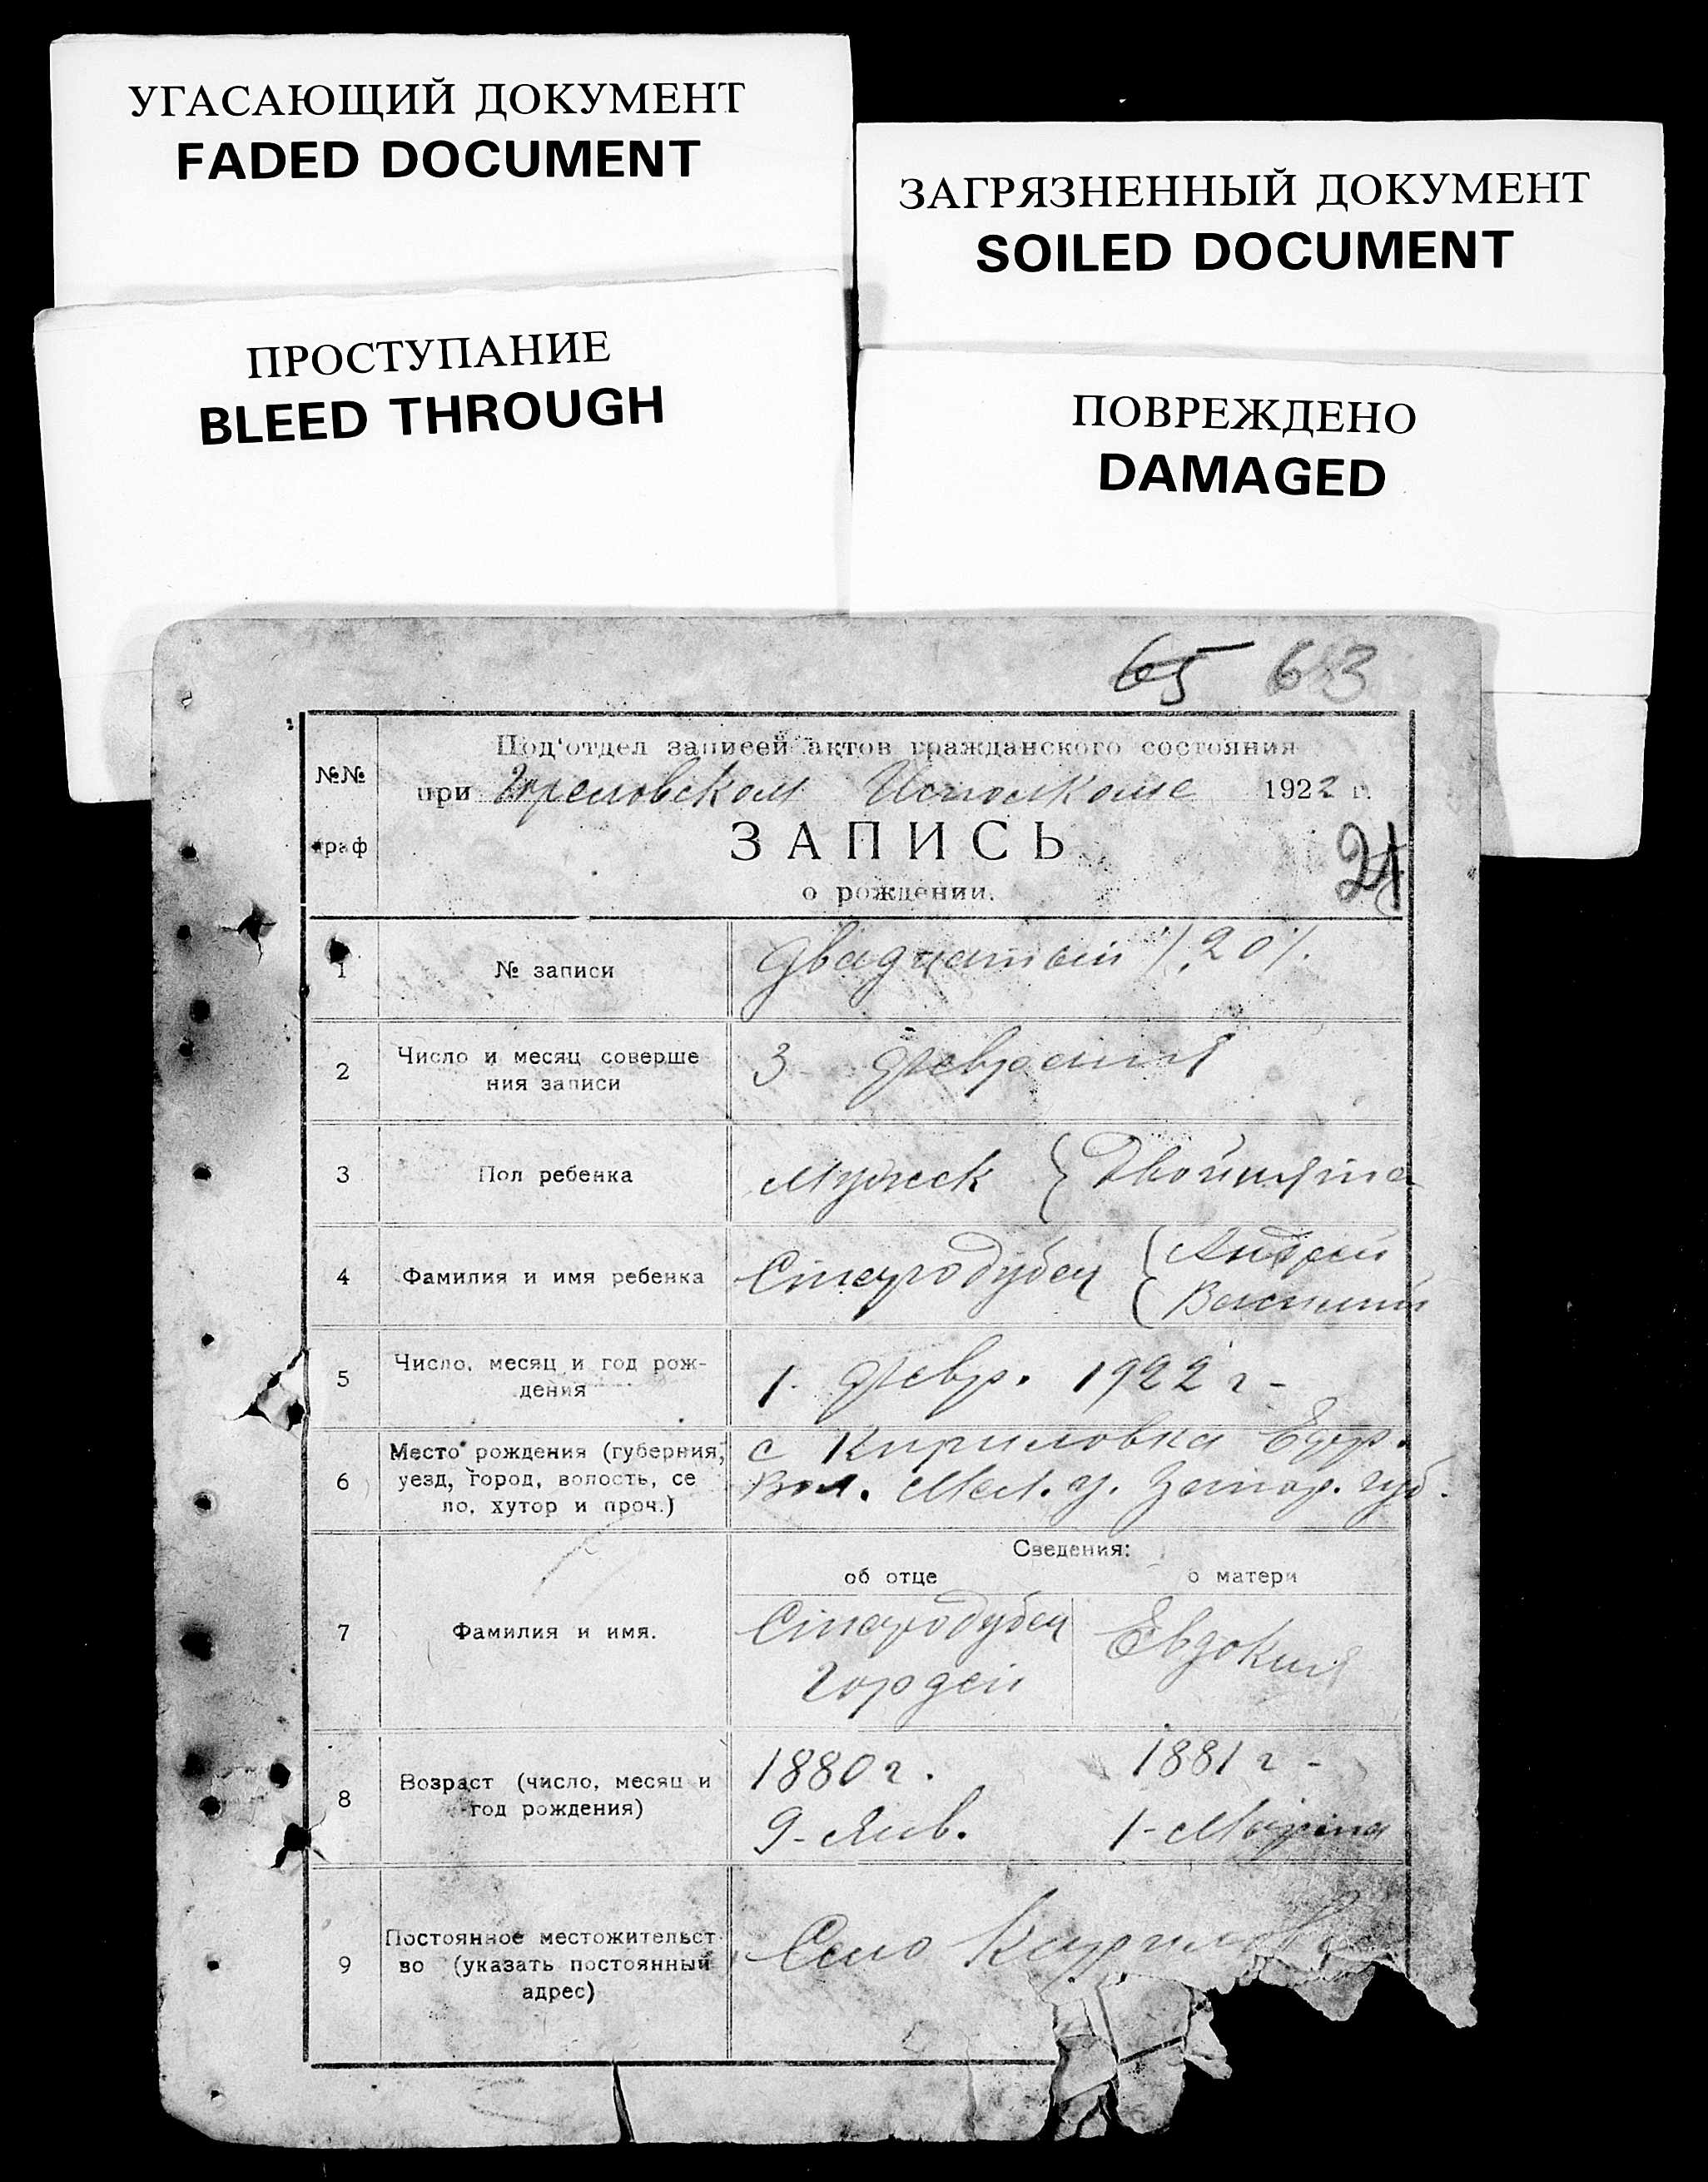 УГАСАЮЩИЙ ДОКУМЕНТ
FADED DOCUMENT
ЗАГРЯЗНЕННЫЙ ДОКУМЕНТ
SOILED DOCUMENT
ПРОСТУПАНИЕ
BLEED THROUGH
ПОВРЕЖДЕНО
DAMAGED
65 63
№№
граф
Под'отдел записей актов гражданского состояния
при Исполкоме 1922 г.
ЗАПИСЬ
о рождении.
21
1 № записи Двадцатый /20/.
2 Число и месяц соверше
ния записи
3 Февраля
3 Пол ребенка Мужск { Двойнята
4 Фамилия и имя ребенка Стародубец ( Андрей
( Василий
5 Число, месяц и год рож-
дения
1. Февр. 1922 г -
6 Место рождения (губерния,
уезд, город, волость, се
ло, хутор и проч.)
с Кириловка Ефр.
Вол. Мел. у. Запор. губ.
Сведения:
об отце о матери
7 Фамилия и имя.
Стародубец
Гордей
Евдокия
8 Возраст (число, месяц и
год рождения)
1880 г. 1881 г -
9 - Янв. 1 - Марта
9 Постоянное местожительст
во (указать постоянный
адрес)
Село